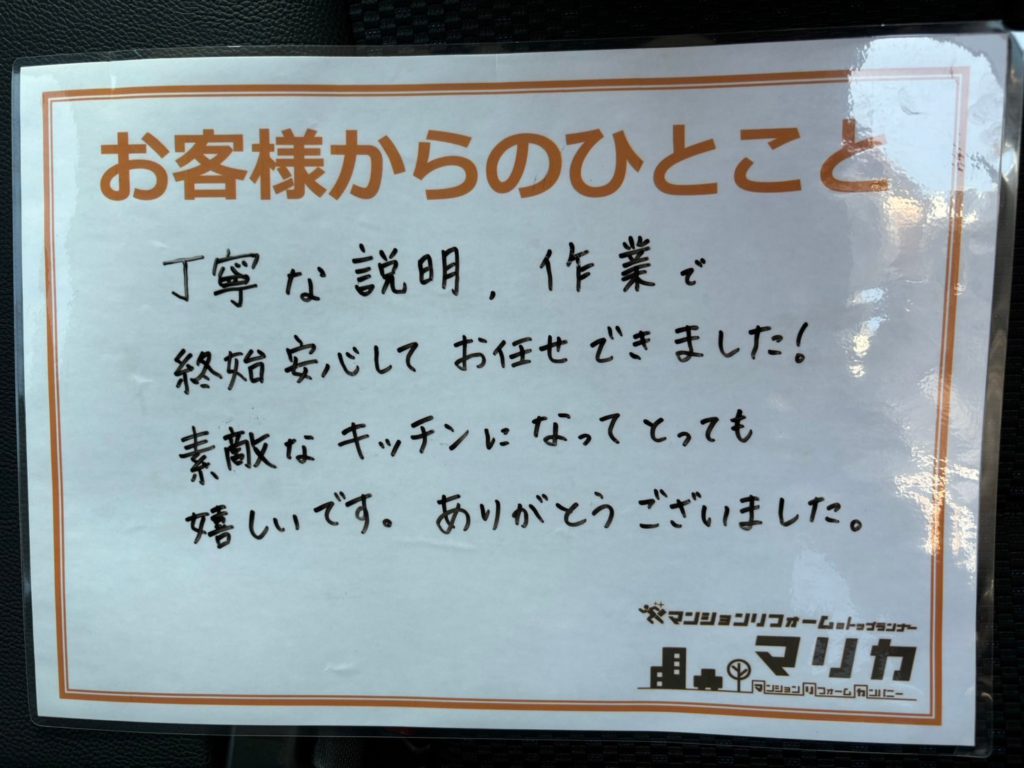 お客様からのひとこと
丁寧な説明、作業で
終始安心してお任せできました!
素敵なキッチンになってとっても
嬉しいです。ありがとうございました。
マンションリフォームのトップランナー
マリカ
マンションリフォームカンパニー